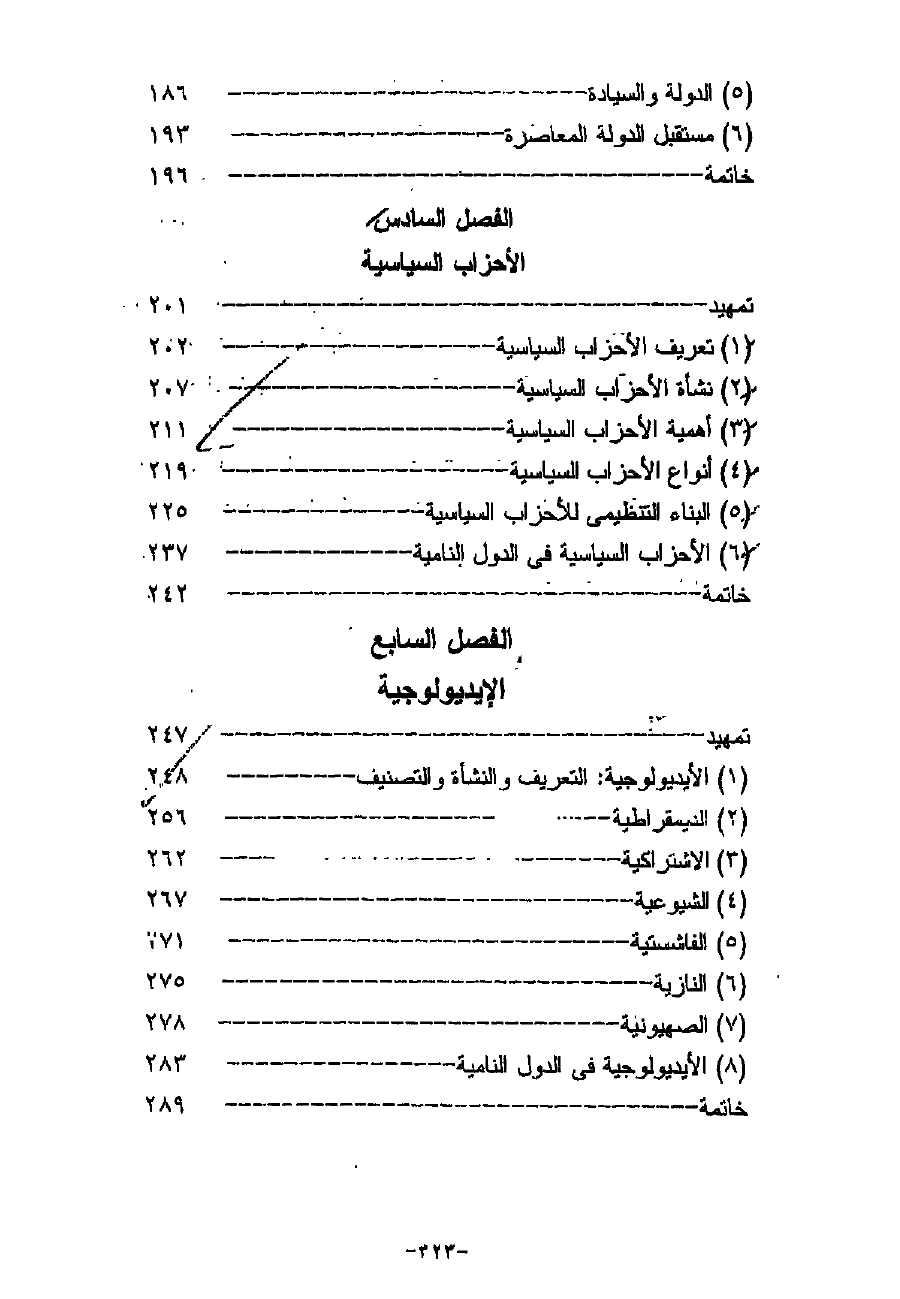 (٥) الدولة والسيادة ١٨٦
(٦) مستقبل الدولة المعاصرة ١٩٣
خاتمة ١٩٦
الفصل السادس
الأحزاب السياسية
تمهيد ٢٠١
(١) تعريف الأحزاب السياسية ٢٠٢
(٢) نشأة الأحزاب السياسية ٢٠٧
(٣) أهمية الأحزاب السياسية ٢١١
(٤) أنواع الأحزاب السياسية ٢١٩
(٥) البناء التنظيمى للأحزاب السياسية ٢٢٥
(٦) الأحزاب السياسية فى الدول النامية ٢٣٧
خاتمة ٢٤٢
الفصل السابع
الإيديولوجية
تمهيد ٢٤٧
(١) الأيديولوجية: التعريف والنشأة والتصنيف ٢٤٨
(٢) الديمقراطية ٢٥٦
(٣) الاشتراكية ٢٦٢
(٤) الشيوعية ٢٦٧
(٥) الفاشستية ٢٧١
(٦) النازية ٢٧٥
(٧) الصهيونية ٢٧٨
(٨) الأيديولوجية فى الدول النامية ٢٨٣
خاتمة ٢٨٩
-٣٢٣-